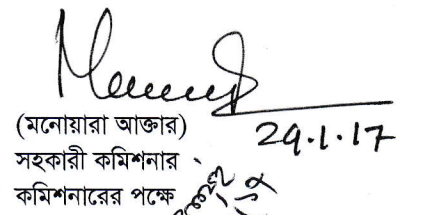 (মনোয়ারা আক্তার)
29.1.17
সহকারী কমিশনার
কমিশনারের পক্ষে